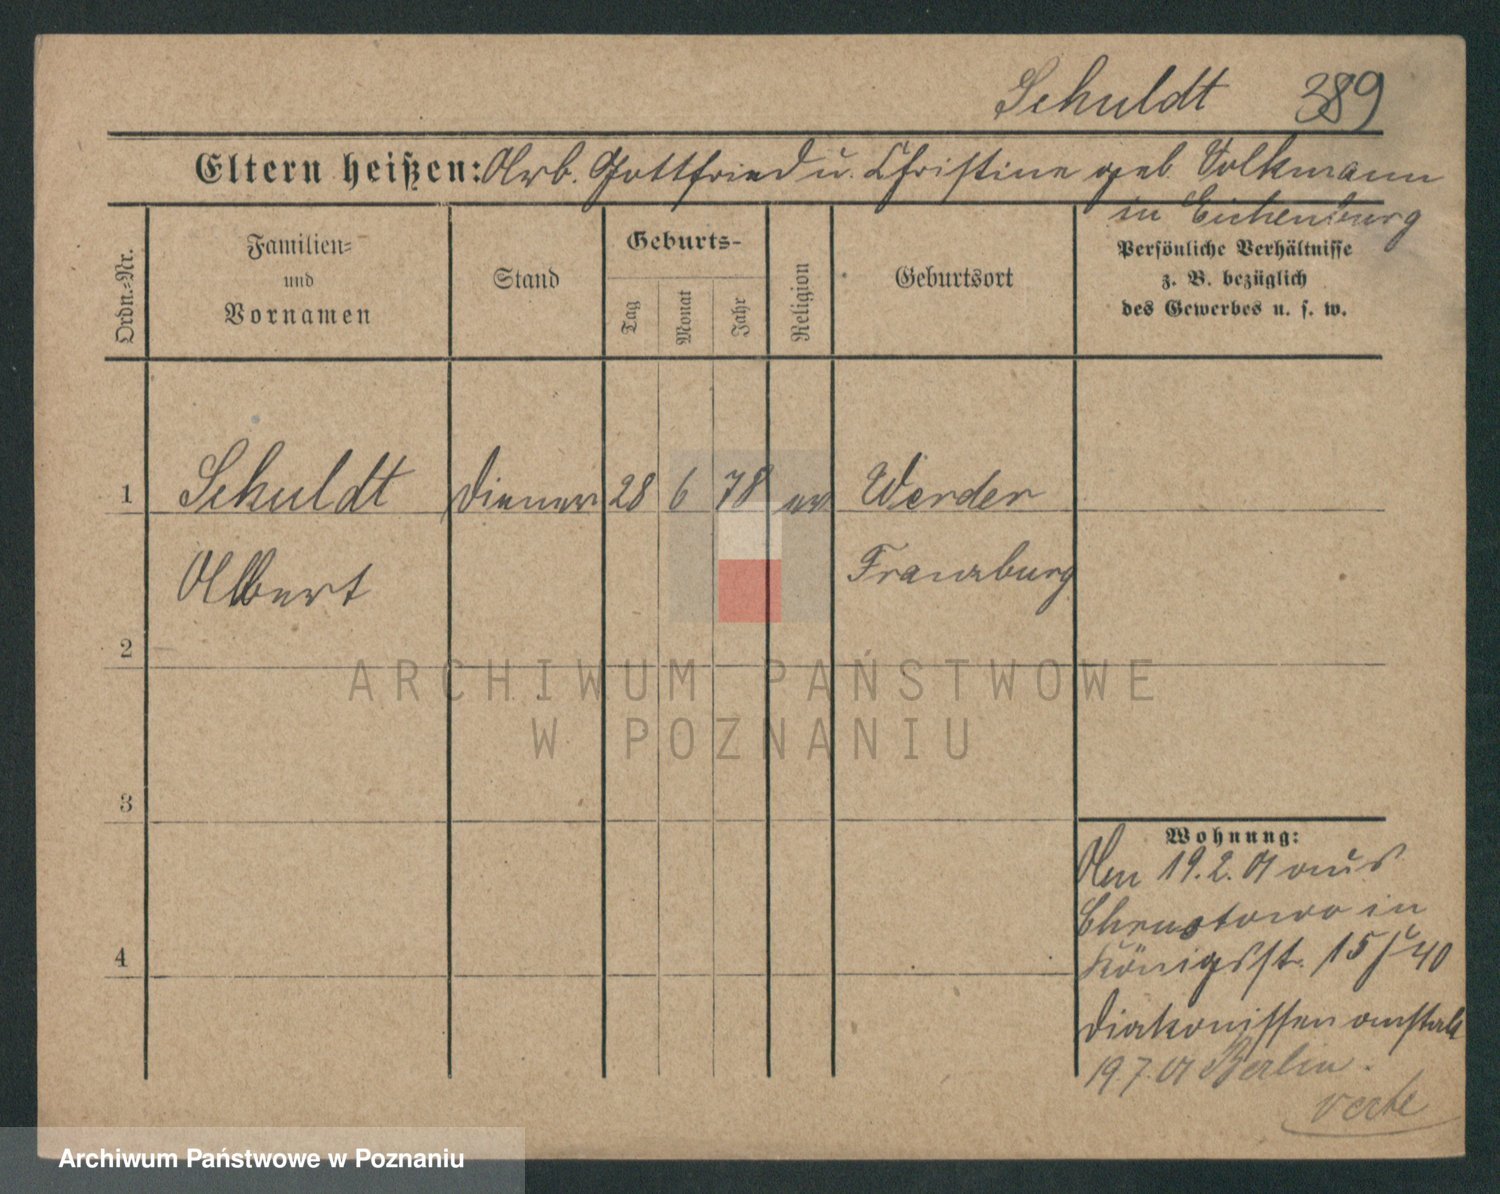 Schuldt 389
Eltern heißen: Arb. Gottfried u. Christine geb. Volkmann
in Eichenburg
Ordn.-Nr.
Familien-
und
Vornamen
Stand
Geburts-
Tag
Monat
Jahr
Religion
Geburtsort
Persönliche Verhältnisse
z. B. bezüglich
des Gewerbes u. s. w.
1 Schuldt Diener 28 6 78 ev Werder
Albert Franzburg
2
3
4
ARCHIWUM PAŃSTWOWE
W POZNANIU
Wohnung:
Am 19.2.01 aus
Chrustowo in
Königsstr. 15 40
Diakonissenanstalt
19.7.01 Berlin.
verte
Archiwum Państwowe w Poznaniu